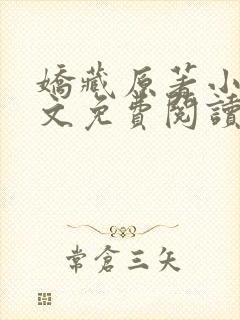 嬌藏原著小
文免費閱讀
常倉三矢